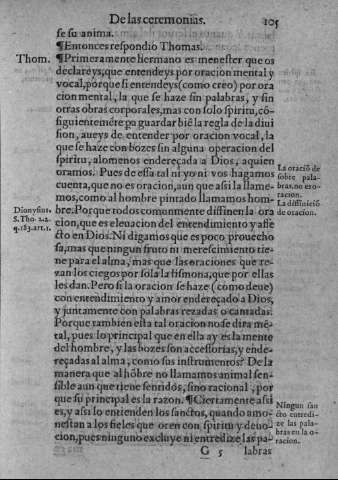 De las ceremonias. 105
se su anima.
¶Entonces respondio Thomas.
Thom.
¶Primeramente hermano es menester que os
declareys, que entendeys por oracion mental y
vocal, porque si entendeys (como creo) por ora
cion mental, la que se haze sin palabras, y sin
otras obras corporales, mas con solo spiritu, cō-
siguientemēte pa guardar biē la regla de la diui
sion, aueys de entender por oracion vocal, la
que se haze con bozes sin alguna operacion del
spiritu, alomenos endereçada a Dios, a quien
oramos. Pues de essa tal ni yo ni vos hagamos
cuenta, que no es oracion, aun que assi la llame-
mos, como al hombre pintado llamamos hom-
bre. Porque todos comunmente diffinen la ora
cion, que es eleuacion del entendimiento y affe
cto en Dios. Ni digamos que es poco prouecho
sa, mas que ningun fruto ni merescimiento tie-
ne para el alma, mas que las oraciones que re-
zan los ciegos por sola la lismona, que por ellas
les dan. Pero si la oracion se haze (como deue)
con entendimiento y amor endereçado a Dios,
y juntamente con palabras rezadas o cantadas.
Porque tambien esta tal oracion no se dira mē-
tal, pues lo principal que en ella ay es la mente
del hombre, y las bozes son accessorias, y ende-
reçadas al alma, como sus instrumentos? De la
manera que al hōbre no llamamos animal sen-
sible aun que tiene sentidos, sino racional, por
que su principal es la razon. ¶Ciertamente assi
es, y assi lo entienden los sanctos, quando amo-
nestan a los fieles que oren con spiritu y deuo-
cion, pues ninguno excluye ni entredize las pa-
G 5 labras
La oraciō de
sobre pala-
bras, no es o-
racion.
La diffinició
de oracion.
Dionysius.
S. Tho 2.2.
q.183.art.1.
Ningun san
cto entredi-
ze las pala-
bras en la o-
racion.